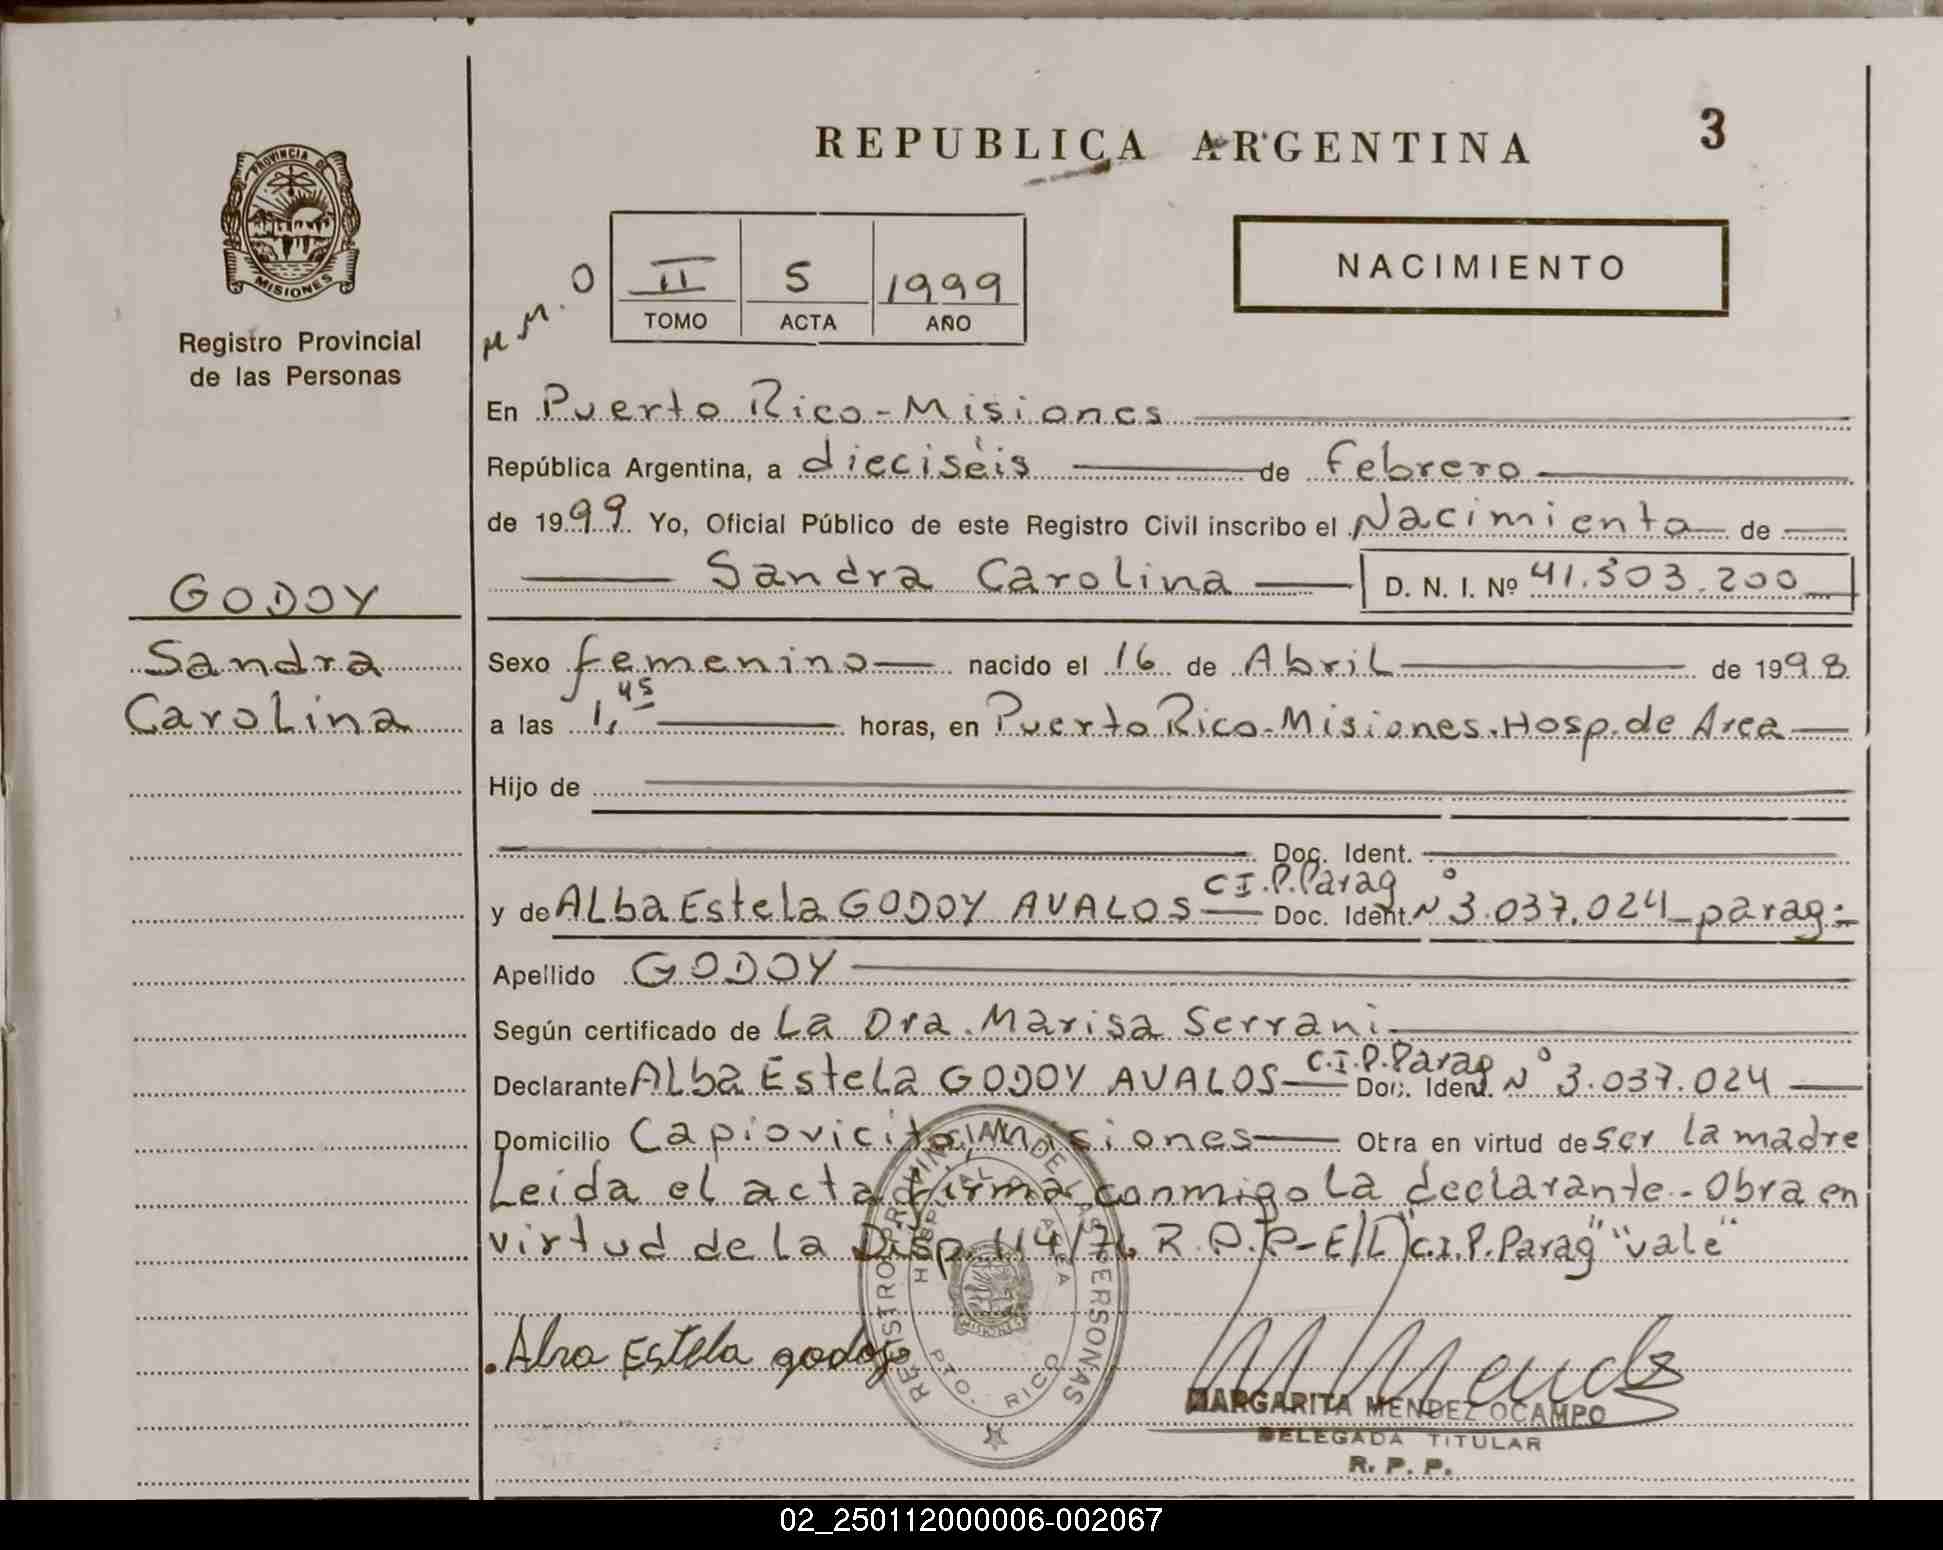 REPUBLICA ARGENTINA
3
PROVINCIA DE
MISIONES
Registro Provincial
de las Personas
II 5 1999
TOMO ACTA AÑO
NACIMIENTO
En Puerto Rico-Misiones
República Argentina, a dieciséis de Febrero
de 1999 Yo, Oficial Público de este Registro Civil inscribo el Nacimiento de
Sandra Carolina D. N. I. Nº 41.303.200
GODOY
Sandra
Carolina
Sexo femenino nacido el 16 de Abril de 1998
a las 1,45 horas, en Puerto Rico-Misiones.Hosp.de Area
Hijo de
Doc. Ident.
C I.P.Parag
y de Alba Estela GODOY AVALOS Doc. Ident. Nº 3.037.024 parag.
Apellido GODOY
Según certificado de La Dra. Marisa Serrani
C.I.P.Parag
Declarante Alba Estela GODOY AVALOS Doc. Ident. Nº 3.037.024
Domicilio Capiovicito, Misiones Obra en virtud de ser la madre
Leida el acta firma conmigo la declarante. Obra en
virtud de la Disp. 114/71. R.P.P-E/L "C.I.P.Parag" "vale"
Alba Estela godoy
REGISTRO PROVINCIAL DE LAS PERSONAS
HOSPITAL DE AREA
PTO. RICO
MISIONES
MARGARITA MENDEZ OCAMPO
DELEGADA TITULAR
R. P. P.
02_250112000006-002067